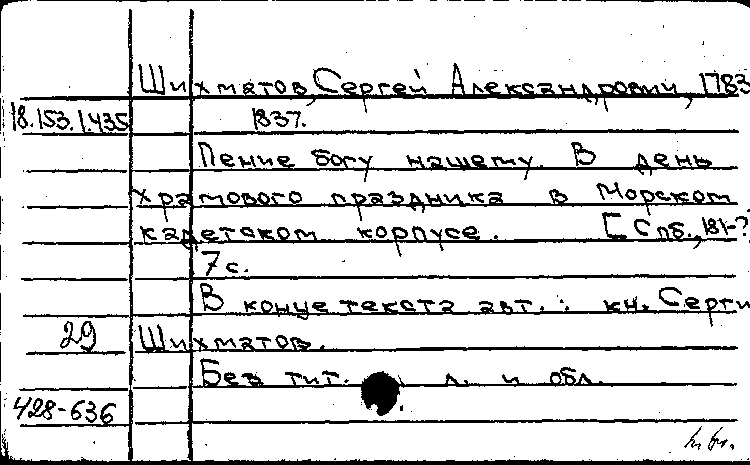 Шихматов, Сергей Александрович, 1783
18.153.1.435 1837.
Пение богу нашему. В день
храмового праздника в Морском
кадетском корпусе. [Спб., 181-?
7 с.
В конце текста авт.: кн. Серги
29 Шихматов.
Без тит. л. и обл.
428-636